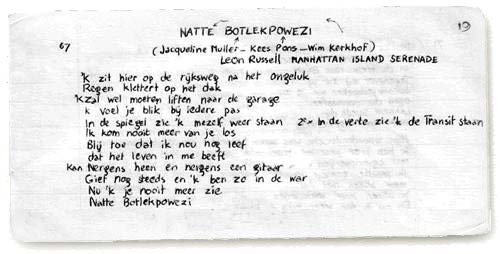 NATTE BOTLEKPOWEZI
19
67
(Jacqueline Muller - Kees Pons - Wim Kerkhof)
Leon Russell MANHATTAN ISLAND SERENADE
'k zit hier op de rijksweg na het ongeluk
Regen klettert op het dak
'k zal wel moeten liften naar de garage
k voel je blik bij iedere pas
In de spiegel zie 'k mezelf weer staan 2ex In de verte zie 'k de Transit staan
Ik kom nooit meer van je los
Blij toe dat ik nou nog leef
dat het leven in me beeft
Kan Nergens heen en nergens een gitaar
Gief nog steeds en 'k ben zo in de war
Nu 'k je nooit meer zie
Natte Botlekpowezi